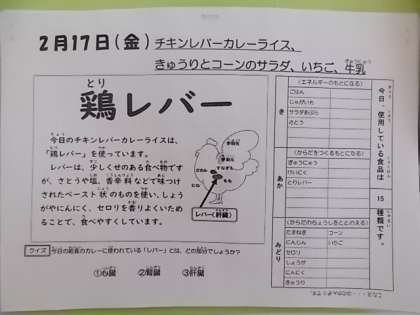 2月17日(金) チキンレバーカレーライス、
きゅうりとコーンのサラダ、いちご、牛乳
とり
鶏レバー
今日のチキンレバーカレーライスは、
「鶏レバー」を使っています。
レバーは、少しくせのある食べ物です
が、さとうや塩、香辛料などで味つけ
されたペースト状のものを使い、しょう
がやにんにく、セロリを香りよくいため
ることで、食べやすくしています。
レバー(肝臓)
クイズ 今日の給食のカレーに使われている「レバー」とは、どの部分でしょうか?
①心臓 ②腎臓 ③肝臓
今日、使用している食品は 15 種類です。
き
(エネルギーのもとになる)
ごはん
じゃがいも
サラダあぶら
さとう
あか
(からだをつくるもとになる)
ぎゅうにゅう
けいにく
とりレバー
みどり
(からだのちょうしをととのえる)
たまねぎ コーン
にんじん いちご
セロリ
しょうが
にんにく
きゅうり